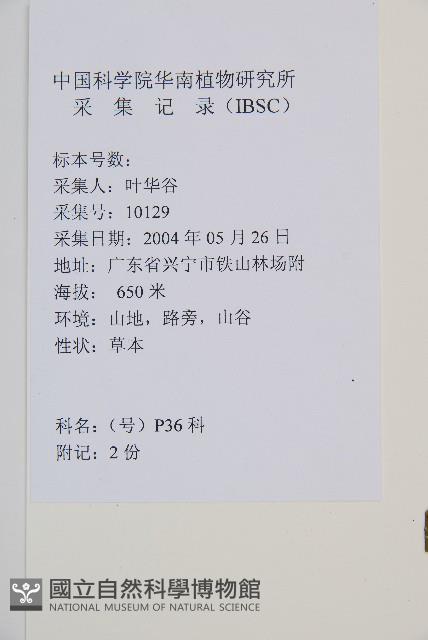 中国科学院华南植物研究所
采 集 记 录（IBSC）
标本号数：
采集人：叶华谷
采集号：10129
采集日期：2004 年 05 月 26 日
地址：广东省兴宁市铁山林场附
海拔： 650 米
环境：山地，路旁，山谷
性状：草本
科名：（号）P36 科
附记：2 份
國立自然科學博物館
NATIONAL MUSEUM OF NATURAL SCIENCE